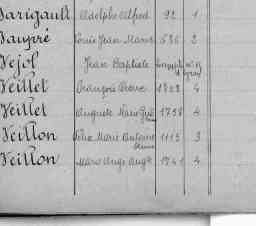 Varigault Adolphe Alfred 92 1
Vaupré Louis Jean Marie 536 2
Vejol Jean Baptiste
Veillet François Pierre 4
Veillet Auguste Marie 1758 4
Veillon Marie Antoine 1113 3
Veillon Marie Ange Aug 1741 4